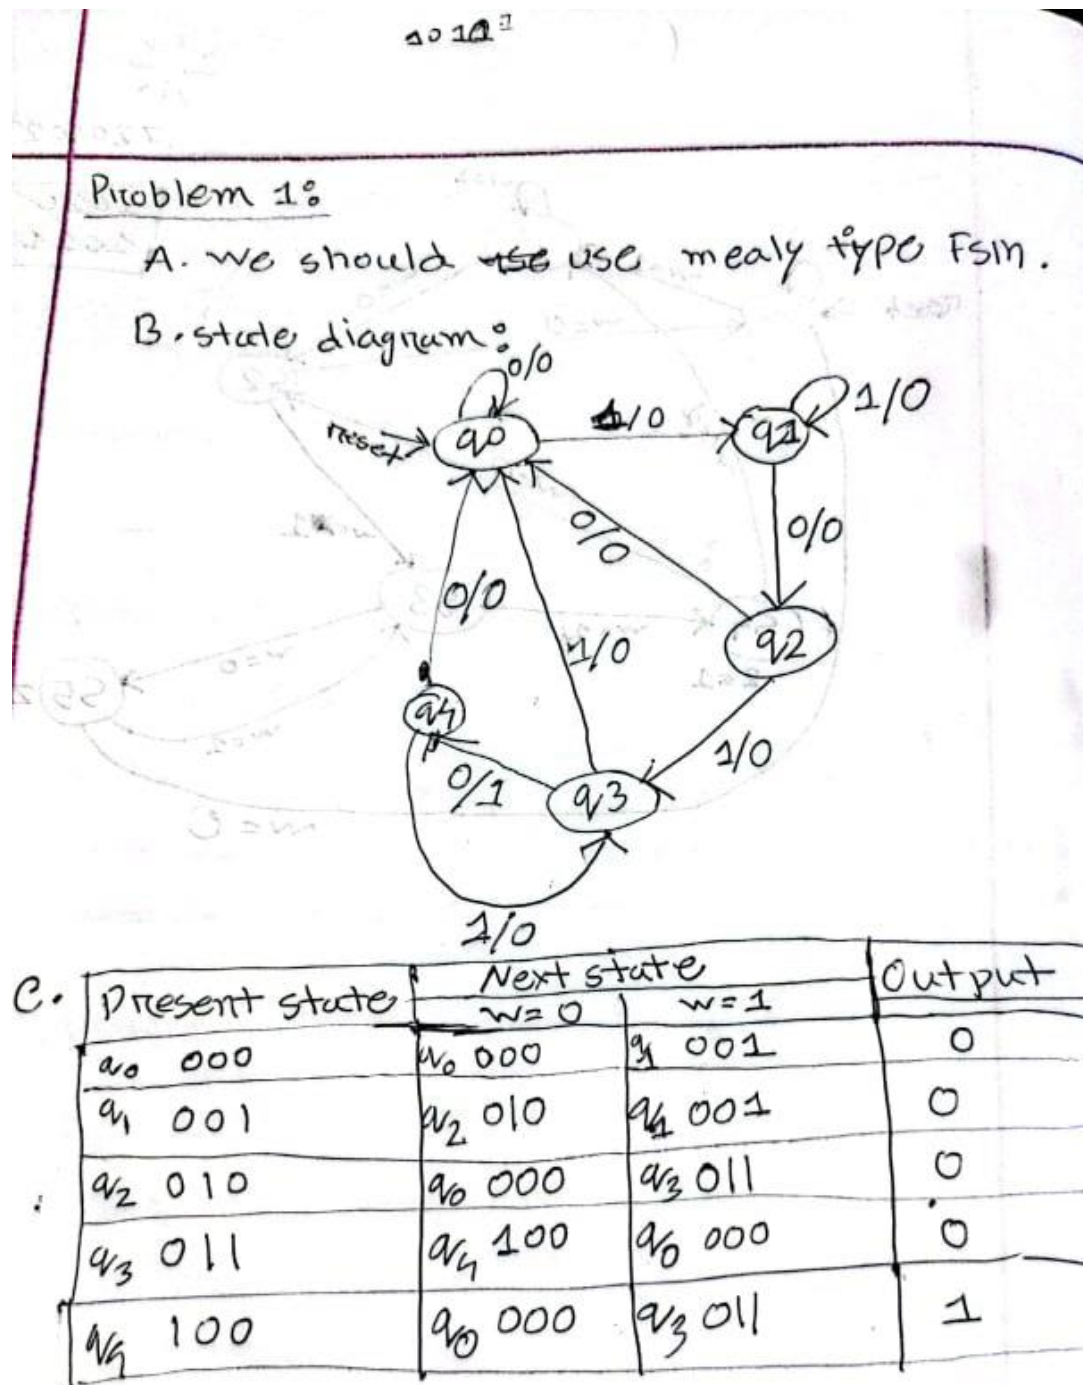 Problem 1:
A. We should use use mealy type FSM.
B. state diagram:
0/0
reset
q0
1/0
q1
1/0
0/0
0/0
q2
0/0
1/0
q4
0/1
q3
1/0
1/0
C.
Present state Next state Output
w=0 w=1
q0 000 q0 000 q1 001 0
q1 001 q2 010 q1 001 0
q2 010 q0 000 q3 011 0
q3 011 q4 100 q0 000 0
q4 100 q0 000 q3 011 1